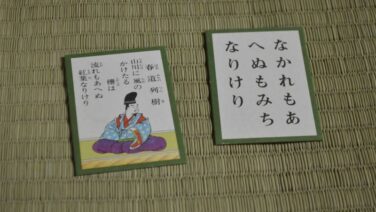 春道列樹
山川に風の
かけたる
柵は
流れもあへぬ
紅葉なりけり
なかれもあ
へぬもみち
なりけり